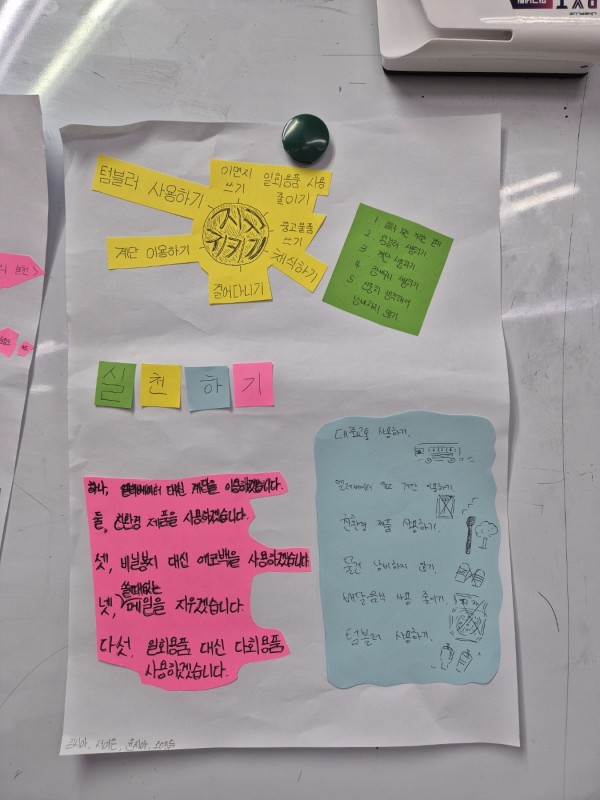 텀블러 사용하기
이면지
쓰기
일회용품 사용
줄이기
지구
지키기
중고물품
쓰기
계단 이용하기
채식하기
걸어다니기
1.
2. 텀블러 사용하기
3. 계단 이용하기
4.
5.
실천하기
대중교통 사용하기.
엘리베이터 말고 계단 이용하기
친환경 제품 사용하기.
물건 낭비하지 않기.
배달음식 사용 줄이기.
텀블러 사용하기.
하나, 엘리베이터 대신 계단을 이용하겠습니다.
둘, 친환경 제품을 사용하겠습니다.
셋, 비닐봉지 대신 에코백을 사용하겠습니다
쓸때없는
넷, 메일을 지우겠습니다.
다섯, 일회용품 대신 다회용품
사용하겠습니다.